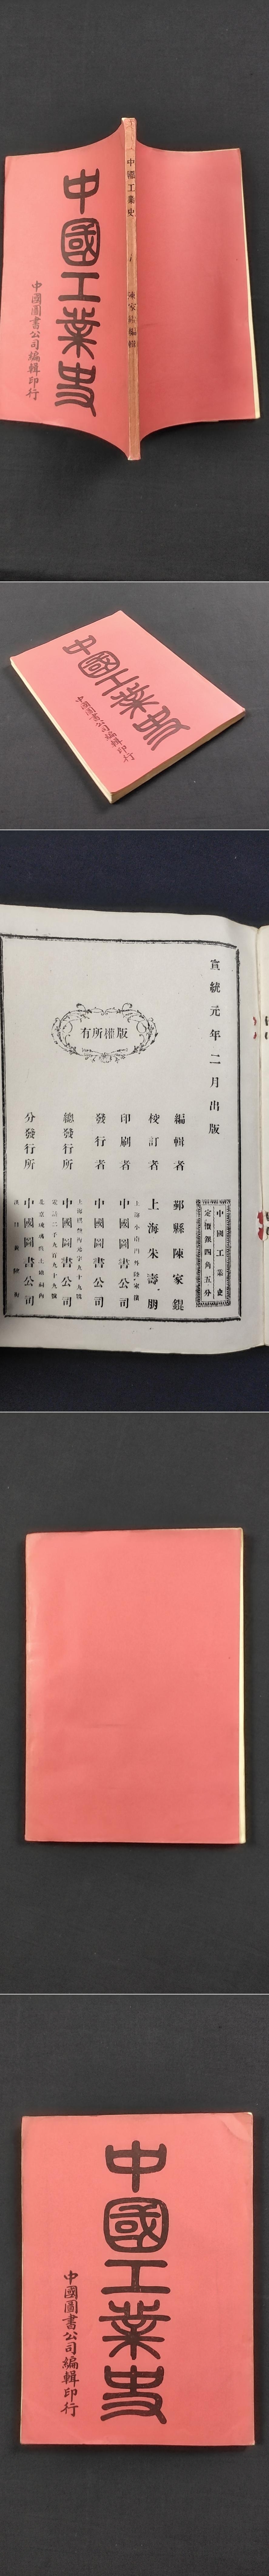 中國工業史
中國圖書公司編輯印行
中國工業史
陳家錕編輯
中國工業史
中國圖書公司編輯印行
宣統元年二月出版
中國工業史
定價銀四角五分
版權所有
編輯者 鄞縣陳家錕
校訂者 上海朱壽朋
印刷者 中國圖書公司
發行者 中國圖書公司
總發行所 中國圖書公司
分發行所 中國圖書公司
中國工業史
中國圖書公司編輯印行